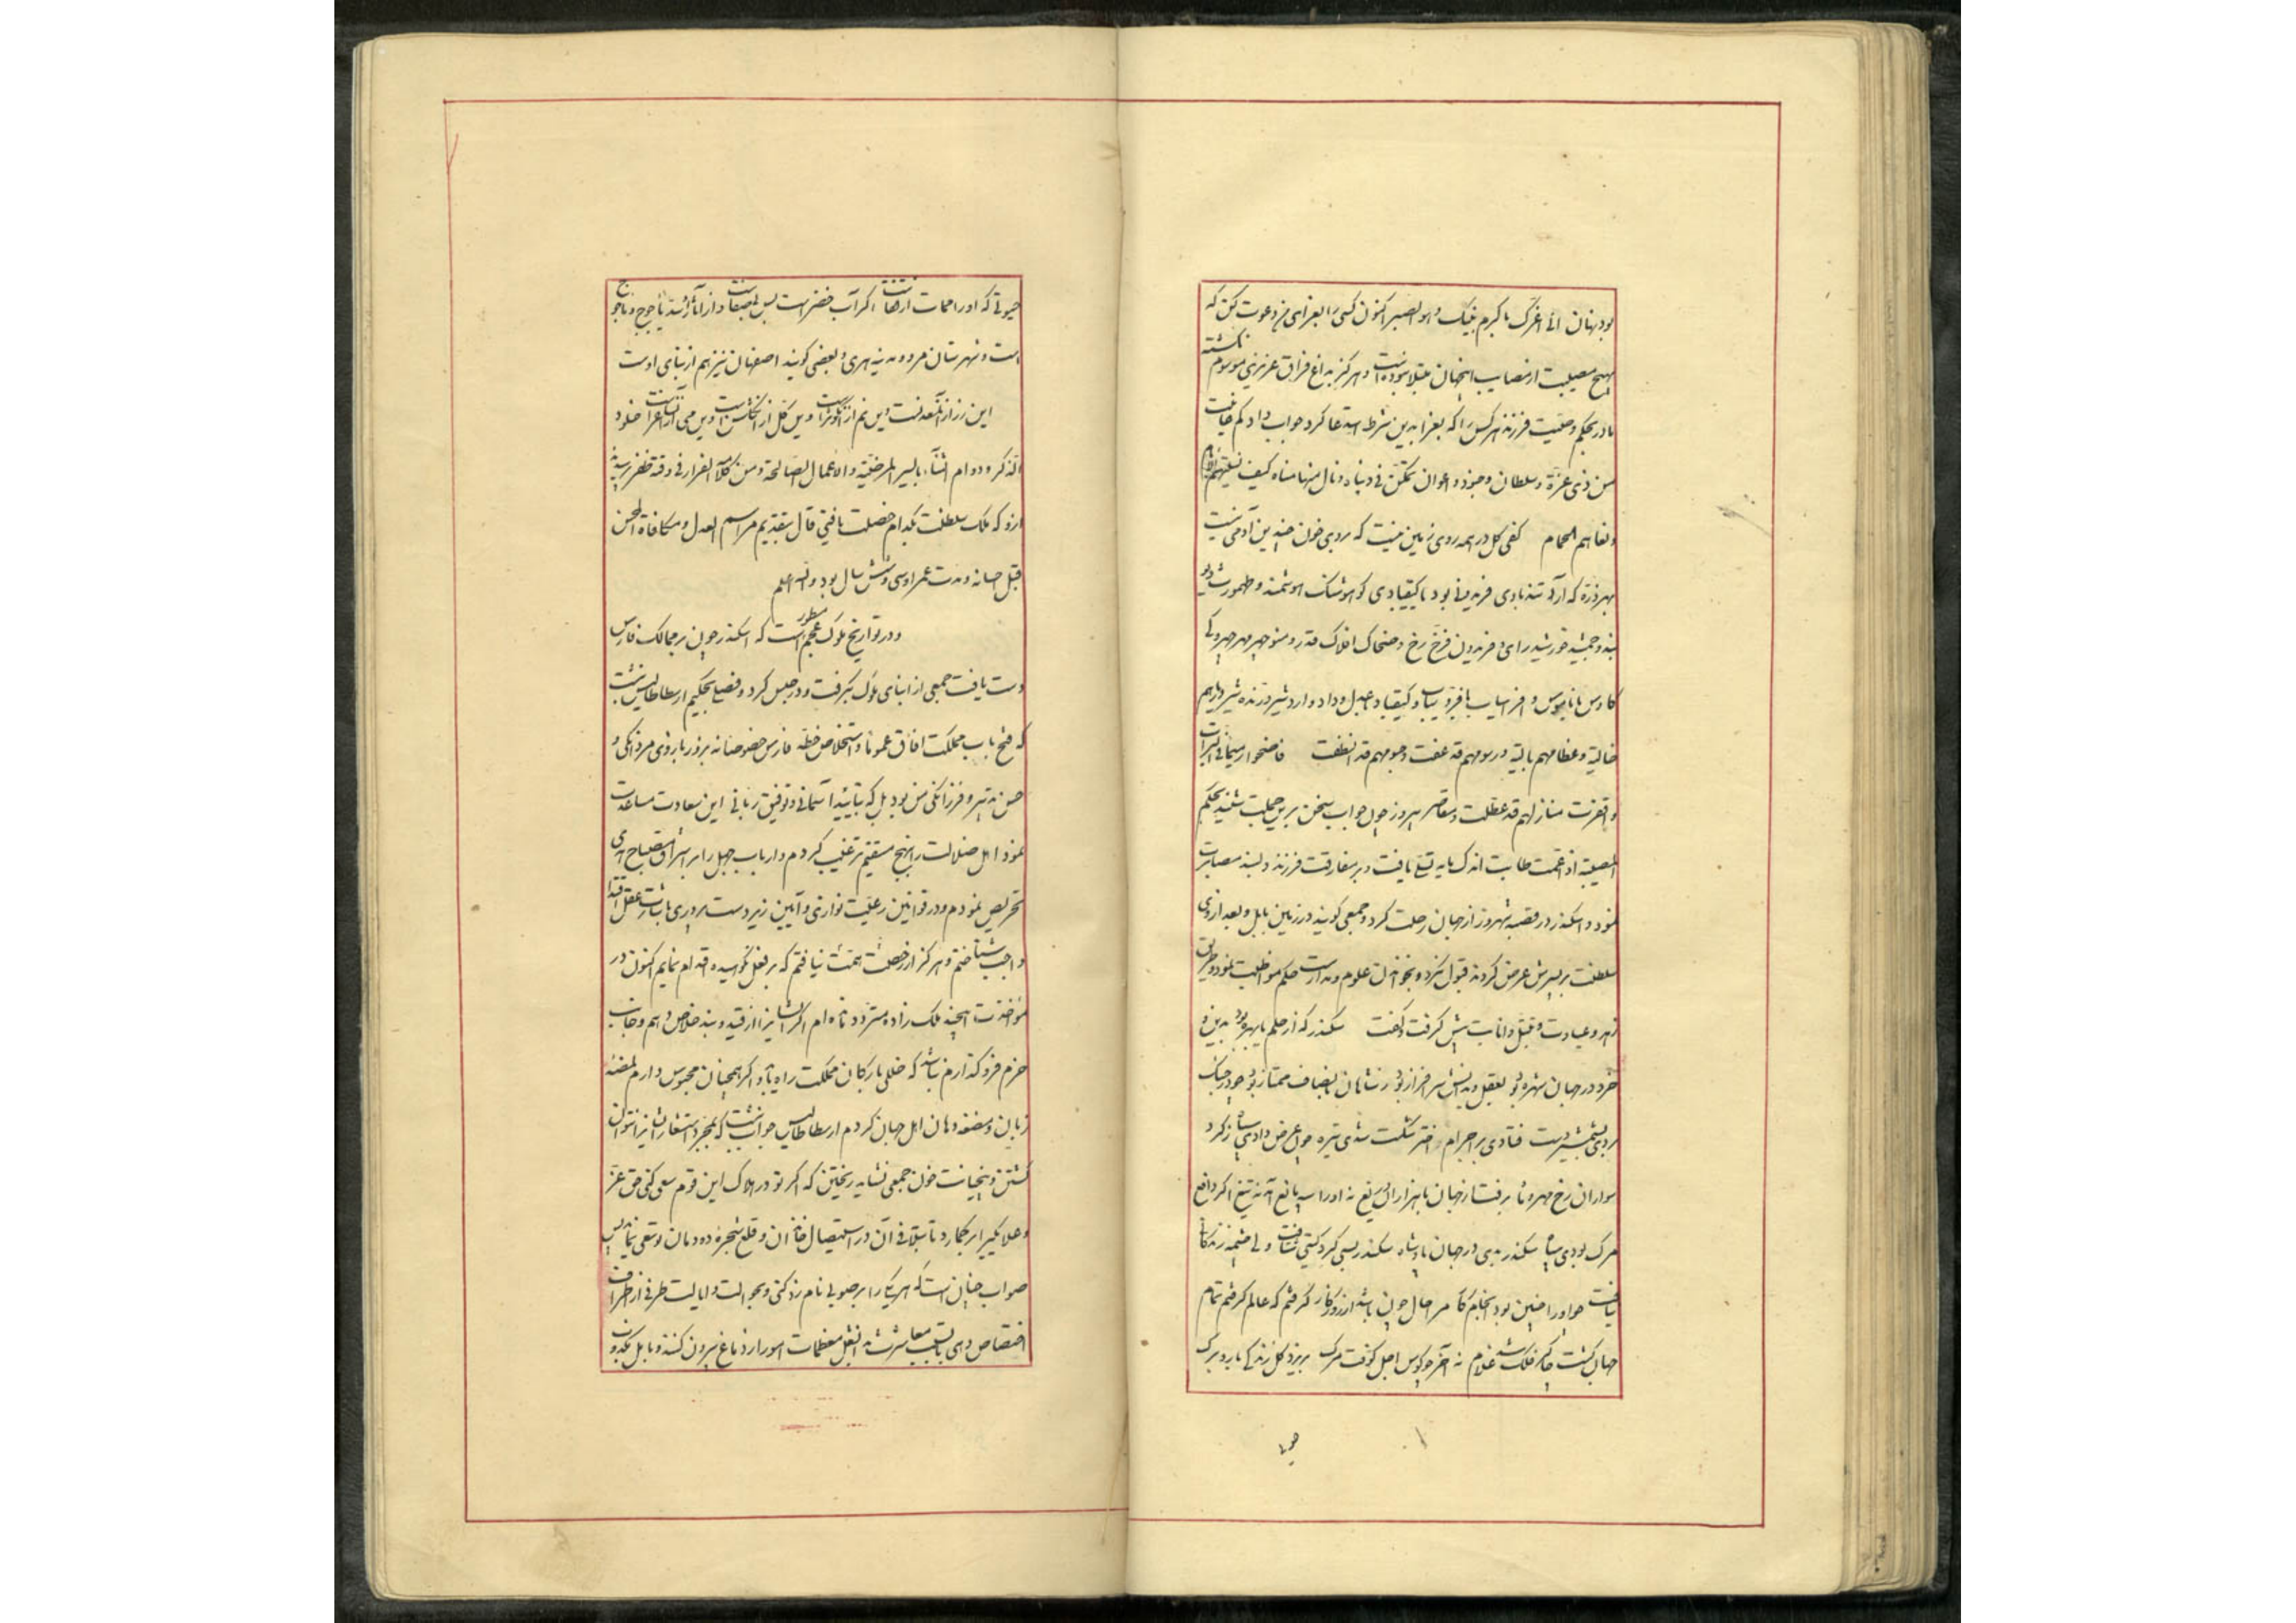 بود بهتان الی اغرک باکرم بنیک و هو الصبر اکنون کسی را بعزای من دعوت کن که
بهیچ مصیبت از مصایب اینجهان مبتلا نبوده است و هرگز بداغ فراق عزیزی موسوم نکشته
مادر بحکم وصیت فرزند هر کس را که بعزا بدین شرط استدعا کرد جواب داد کم
من ذی عزة و سلطان و جنود و اعوان تمکن فی دنیاه و نال منها مناه کیف
الحمام کفی کل در همه روی زمین نیست که بر وی خون چندین آدمی نیست
بهر ذره که آرد تند بادی فریدونی بود یا کیقبادی کو هوشنک هوشمند و طهمورث دیو
بند و جمشید خورشید رای و فریدون فرخ رخ و ضحاک افلاک قدر و منوچهر مهر چهر و کی
کاوس با ناموس و افراسیاب و کیقباد و عدل و داد و اردشیر درنده شیر دیارهم
خالیة و عظامهم بالیة و رسومهم قد عفت و نجومهم قد انطفت فاضحوا رمیما فی التراب
و اقفرت منازلهم قد عطلت و مقاصر بهروز چون جواب سخن برین جملت شنید بحکم
المصیبة اذا عمت طابت اندک مایه تسلی یافت و بر مفارقت فرزند دلبند مصابرت
نمود و اسکندر در قصبه شهروز از جهان رحلت کرد و جمعی کویند در زمین بابل و بعد از وی
سلطنت بر پسرش عرض کردند قبول نکرد و بخواندن علوم و مدارست حکم مواظبت نمود و طریق
زهد و عبادت و تبتل و انابت پیش کرفت و کفت سکندر که از حلم با بهره بود بدین و
خرد در جهان شهره بود بعقل و بدانش سرافراز بود ز شاهان بانصاف ممتاز بود چو در جنک
بردی بشمشیر دست فتادی بر اجرام اختر شکست شدی تیره چون عرض دادی سپاه ز کرد
سواران رخ مهر و ماه برفت از جهان با هزاران دریغ نه اورا سپه مانع آمد نه تیغ اکر دافع
مرک بودی سپاه سکندر بدی در جهان پادشاه سکندر بسی کرد کیتی شتافت ولی چشمه زندکانی
نیافت چو اورا چنین بود انجام کار مرا حال چون باشد از روزکار کرفتم که عالم کرفتم تمام
جهان کشت چاکر فلک شد غلام نه آخر چو کوس اجل کوفت مرک بریزد کل زندکی بار و برک
حیوتی که اورا ممات ارهاست اکر آب خضر است بس بیصفاست و از آثار او سد یأجوج و ماجوج
است و شهرستان مرو و مدینه هری و بعضی کویند اصفهان نیز هم از بنای اوست
این زر از آن معدنست وین نم از آن کوثر است وین کل از آن کلشن است وین می از آن ساغر است خلود
الذکر و دوام الثناء بالسیر المرضیة و الاعمال الصالحة و من کلامه الغرار فی وقته ظفر پرسیدند
ازو که ملک و سلطنت بکدام خصلت یافتی قال بتقدیم مراسم العدل و مکافاة المحسن
قبل احسانه و مدت عمر او سی و شش سال بود والله اعلم
و در تواریخ ملوک عجم مسطور است که اسکندر چون بر ممالک فارس
دست یافت جمعی از ابنای ملوک بکرفت و در حبس کرد و فصلی بحکیم ارسطاطالیس نبشت
که فتح باب مملکت آفاق عموما و استخلاص خطه فارس خصوصا نه بزور بازوی مردانکی و
حسن تدبیر و فرزانکی من بود بل که بتایید آسمانی و توفیق ربانی این سعادت مساعدت
نمود اهل ضلالت را بنهج مستقیم ترغیب کردم و ارباب جهل را بر اشراق مصباح هدی
تحریص نمودم و در قوانین رعیت نوازی و آیین زیردست پروری باشارت عقل اقتدا
واجب شناختم و هرکز از خصلت همت نیافتم که بر فعل نکوهیده اقدام نمایم اکنون در
مؤاخذت این چند ملک زاده متردد مانده ام اکر ایشانرا از قید و بند خلاص دهم و جانب
حزم فرو کذارم نباید که خللی بارکان مملکت راه یابد و اکر همچنان محبوس دارم مضغه
زبان و مضغه دهان اهل جهان کردم ارسطاطالیس جواب نبشت که بمجرد استشعار ایشانرا نتوان
کشتن و بخیانت خون جمعی نشاید ریختن که اکر تو در هلاک این قوم سعی کنی حق عز
و علا یکی را بر کمارد تا بتلافی آن در استیصال خاندان و قلع شجره دودمان تو سعی نماید پس
صواب چنان است که هر یک را بر صوبی نامزد کنی و بحوالت و ایالت طرفی از اطراف
اختصاص دهی تا بسبب معاشرت ثقل معظمات امور از دماغ بیرون کنند و با یکدیکر
حیوتی